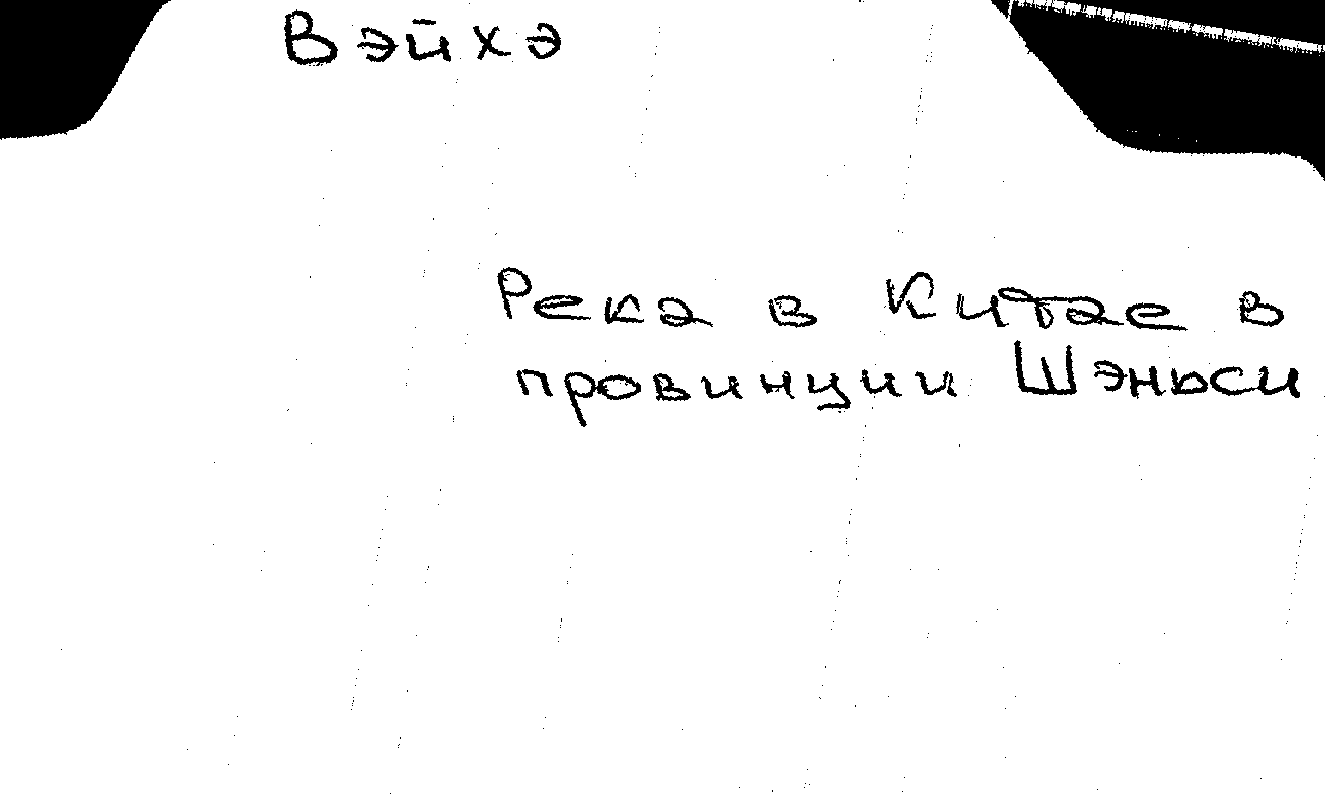 Вэйхэ
Река в Китае в
провинции Шэньси